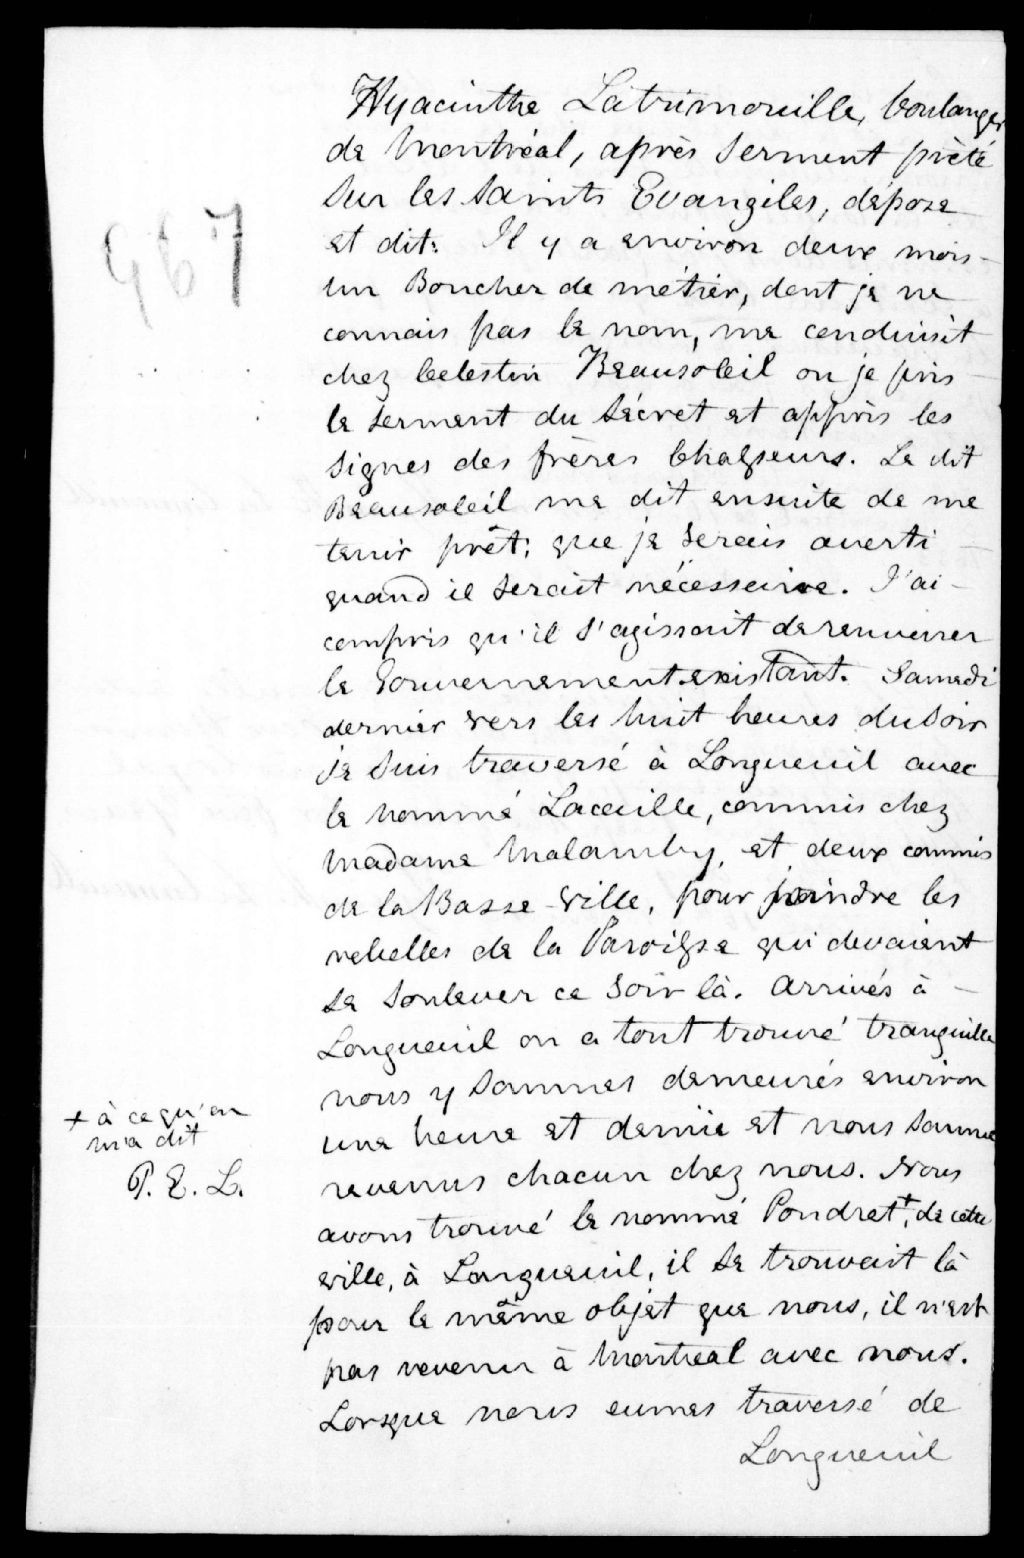 Hyacinthe Latrimouille, boulanger
de Montréal, après serment prêté
sur les saints Evangiles, dépose
et dit: Il y a environ deux mois –
967
un Boucher de métier, dont je ne
connais pas le nom, me conduisit
chez Celestin Beausoleil ou je pris –
le serment du sécret et appris les
signes des frères Chasseurs. Le dit
Beausoleil me dit ensuite de me
tenir prêt; que je serais averti –
quand il serait nécessaire. J'ai –
compris qu'il s'agissait de renverser
le Gouvernement existant. Samedi
dernier vers les huit heures du soir
je suis traversé à Longueuil avec
le nommé Lacaille, commis chez
Madame Malamby, et deux commis
de la Basse-ville, pour joindre les
rebelles de la Paroisse qui devaient
se soulever ce soir là. Arrivés à –
Longueuil on a tout trouvé tranquille
nous y sommes demeurés environ
une heure et demie et nous somme
revenus chacun chez nous. Nous
avons trouvé le nommé Pondret +, de cette
ville, à Longueuil, il se trouvait là
pour le même objet que nous, il n'est
pas revenu à Montreal avec nous.
Lorsque nous eumes traversé de
Longueuil
+ à ce qu'on
m'a dit
P. E. L.